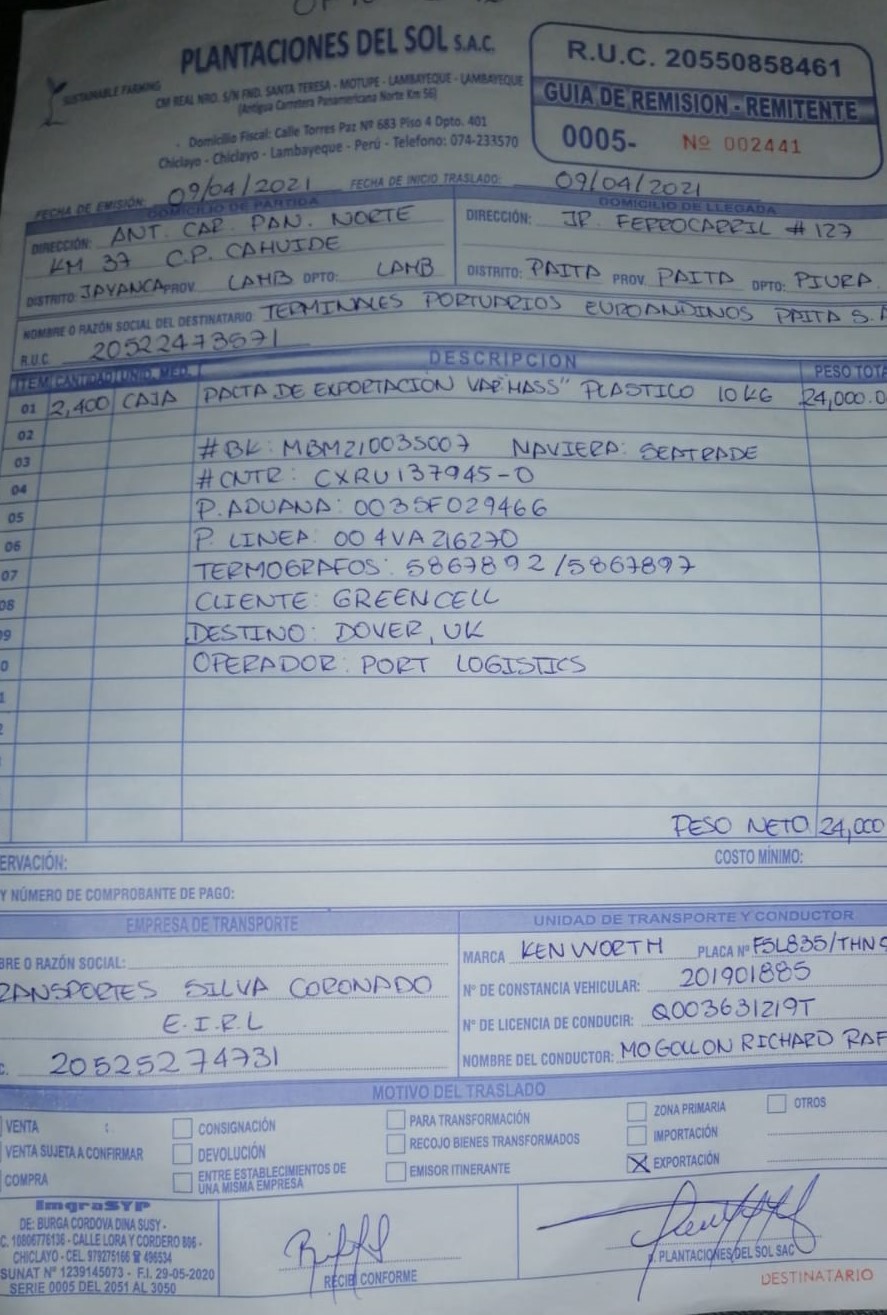 PLANTACIONES DEL SOL S.A.C.
SUSTAINABLE FARMING
CM REAL NRO. S/N FND. SANTA TERESA - MOTUPE - LAMBAYEQUE - LAMBAYEQUE
(Antigua Carretera Panamericana Norte Km 56)
- Domicilio Fiscal: Calle Torres Paz Nº 683 Piso 4 Dpto. 401
Chiclayo - Chiclayo - Lambayeque - Perú - Telefono: 074-233570
R.U.C. 20550858461
GUIA DE REMISION - REMITENTE
0005- Nº 002441
FECHA DE EMISIÓN: 09/04/2021 FECHA DE INICIO TRASLADO: 09/04/2021
DOMICILIO DE PARTIDA
DIRECCIÓN: ANT. CAR. PAN. NORTE
KM 37 C.P. CAHUIDE
DISTRITO: JAYANCA PROV. LAMB DPTO: LAMB
DOMICILIO DE LLEGADA
DIRECCIÓN: JR. FERROCARRIL # 127
DISTRITO: PAITA PROV. PAITA DPTO: PIURA
NOMBRE O RAZÓN SOCIAL DEL DESTINATARIO: TERMINALES PORTUARIOS EUROANDINOS PAITA S.A
R.U.C. 20522473571
ITEM CANTIDAD UNID. MED. DESCRIPCION PESO TOTA
01 2,400 CAJA PALTA DE EXPORTACIÓN VAR "HASS" PLASTICO 10 KG 24,000.0
02
03 #BK: MBM210035007 NAVIERA: SEATRADE
04 #CNTR: CXRU137945-0
05 P. ADUANA: 0035F029466
06 P. LINEA: 004VA216270
07 TERMOGRAFOS: 5867892/5867897
08 CLIENTE: GREENCELL
9 DESTINO: DOVER, UK
0 OPERADOR: PORT LOGISTICS
1
2
PESO NETO 24,000
ERVACIÓN: COSTO MÍNIMO:
Y NÚMERO DE COMPROBANTE DE PAGO:
EMPRESA DE TRANSPORTE
BRE O RAZÓN SOCIAL:
RANSPORTES SILVA CORONADO
E.I.R.L
C. 20525274731
UNIDAD DE TRANSPORTE Y CONDUCTOR
MARCA KENWORTH PLACA Nº F5L835/THN9
Nº DE CONSTANCIA VEHICULAR: 201901885
Nº DE LICENCIA DE CONDUCIR: Q003631219T
NOMBRE DEL CONDUCTOR: MOGOLLON RICHARD RAF
MOTIVO DEL TRASLADO
VENTA :
VENTA SUJETA A CONFIRMAR
COMPRA
CONSIGNACIÓN
DEVOLUCIÓN
ENTRE ESTABLECIMIENTOS DE
UNA MISMA EMPRESA
PARA TRANSFORMACIÓN
RECOJO BIENES TRANSFORMADOS
EMISOR ITINERANTE
ZONA PRIMARIA
IMPORTACIÓN
X EXPORTACIÓN
OTROS
ImgraSYP
DE: BURGA CORDOVA DINA SUSY -
C. 10806776136 - CALLE LORA Y CORDERO 886 -
CHICLAYO - CEL. 979275166 ☎ 496534
SUNAT Nº 1239145073 - F.I. 29-05-2020
SERIE 0005 DEL 2051 AL 3050
RECIBI CONFORME
P. PLANTACIONES DEL SOL SAC
DESTINATARIO